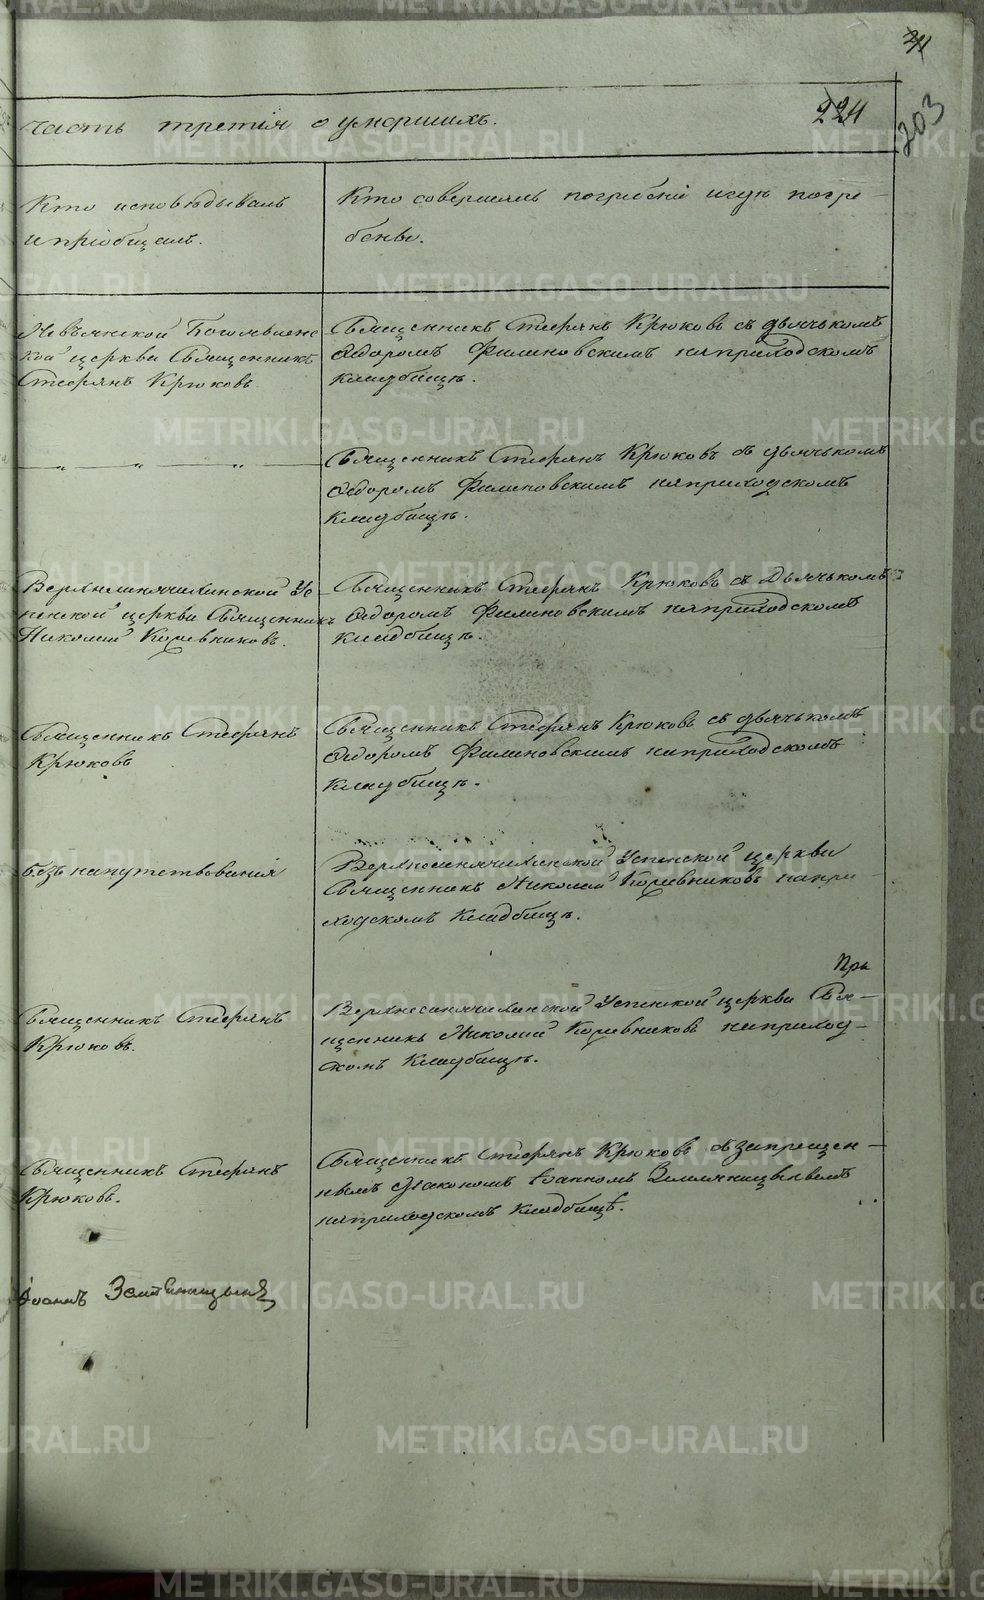 21
часть третія о умершихъ.
224
203
Кто исповѣдывалъ
и пріобщалъ.
Кто совершалъ погребеніе и гдѣ погре-
бены.
Невьянской Богоявленс
кой церкви Священникъ
Стефанъ Крюковъ
Священникъ Стефанъ Крюковъ съ дьячькомъ
Ѳедоромъ Филиновскимъ на приходскомъ
кладбищѣ.
— „ „ „ —
Священникъ Стефанъ Крюковъ съ дьячькомъ
Ѳедоромъ Филиновскимъ на приходскомъ
кладбищѣ.
Верхнесинячихинской Ус
пенской церкви Священникъ
Николай Коревниковъ.
Священникъ Стефанъ Крюковъ съ Дьячькомъ
Ѳедоромъ Филиновскимъ на приходскомъ
кладбищѣ.
Священникъ Стефанъ
Крюковъ
Священникъ Стефанъ Крюковъ съ дьячькомъ
Ѳедоромъ Филиновскимъ на приходскомъ
кладбищѣ.
безъ напутствованія
Верхнесинячихинской Успенской церкви
Священникъ Николай Коревниковъ на при-
ходскомъ кладбищѣ.
При
Священникъ Стефанъ
Крюковъ.
Верхнесинячихинской Успенской церкви Свя-
щенникъ Николай Коревниковъ на приход-
скомъ кладбищѣ.
Священникъ Стефанъ
Крюковъ.
Священникъ Стефанъ Крюковъ съ запрещен-
нымъ Діакономъ Іоанномъ Земляницынымъ
на приходскомъ кладбищѣ.
Іоаннъ Земляницынъ
METRIKI.GASO-URAL.RU